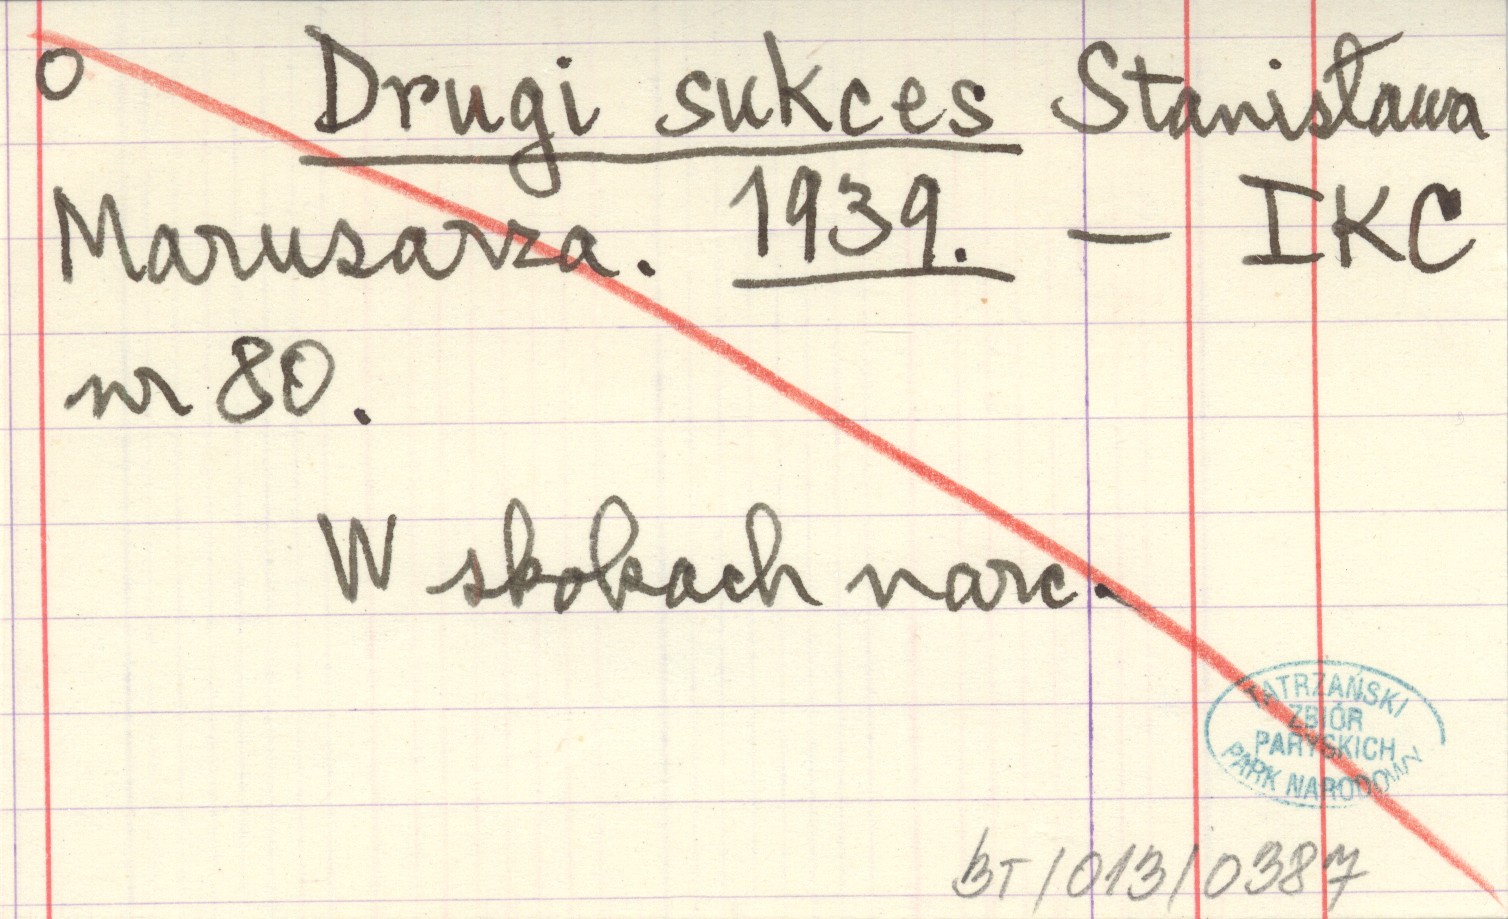 O Drugi sukces Stanisława
Marusarza. 1939. — IKC
nr 80.
W skokach narc.
TATRZAŃSKI
ZBIÓR
PARYSKICH
PARK NARODOWY
BT/013/0387